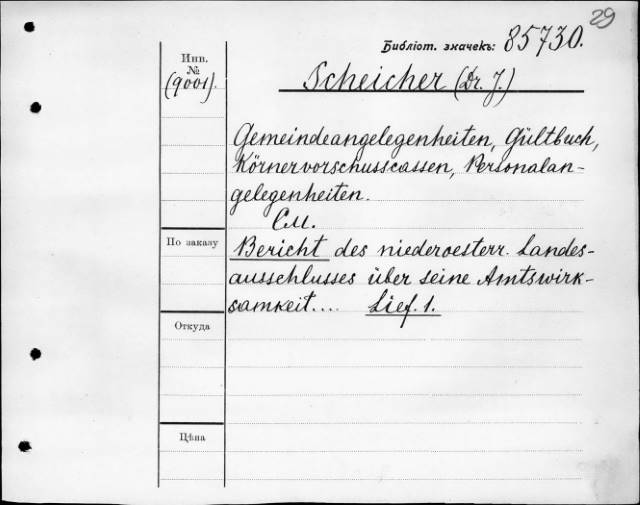 29
Библіот. значекъ: 85730.
Инв.
№
(9001).
Scheicher (Dr. J.)
Gemeindeangelegenheiten, Gültbuch,
Körnervorschusscassen, Personalan-
gelegenheiten.
См.
По заказу
Bericht des niederoesterr. Landes-
ausschlusses über seine Amtswirk-
samkeit.... Lief. 1.
Откуда
Цѣна